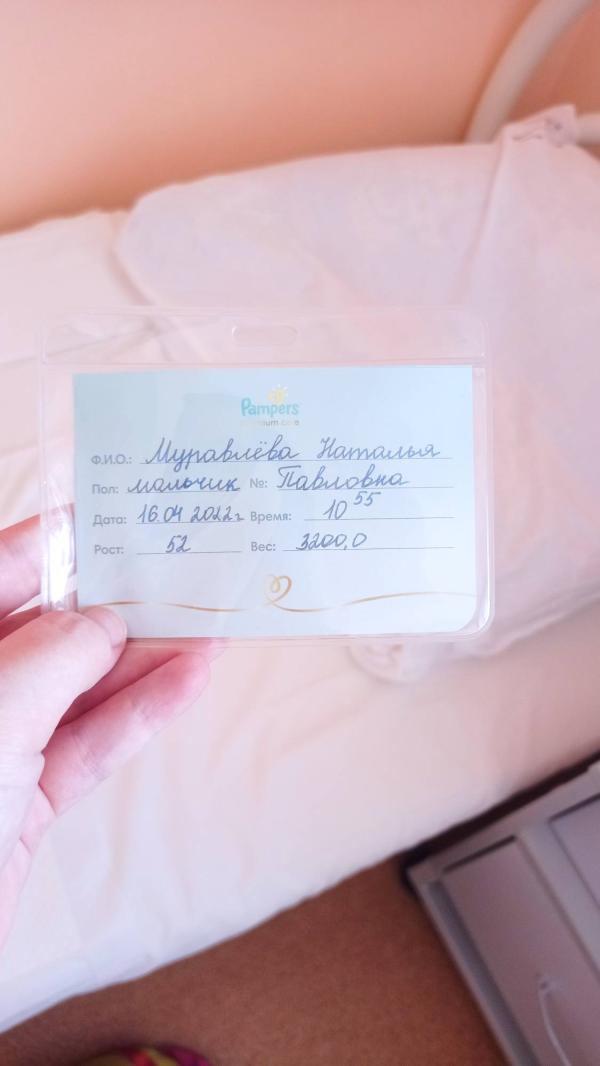 Pampers
premium care
Ф.И.О.: Муравлёва Наталья
Пол: мальчик №: Павловна
Дата: 16.04 2022г Время: 10 55
Рост: 52 Вес: 3200,0